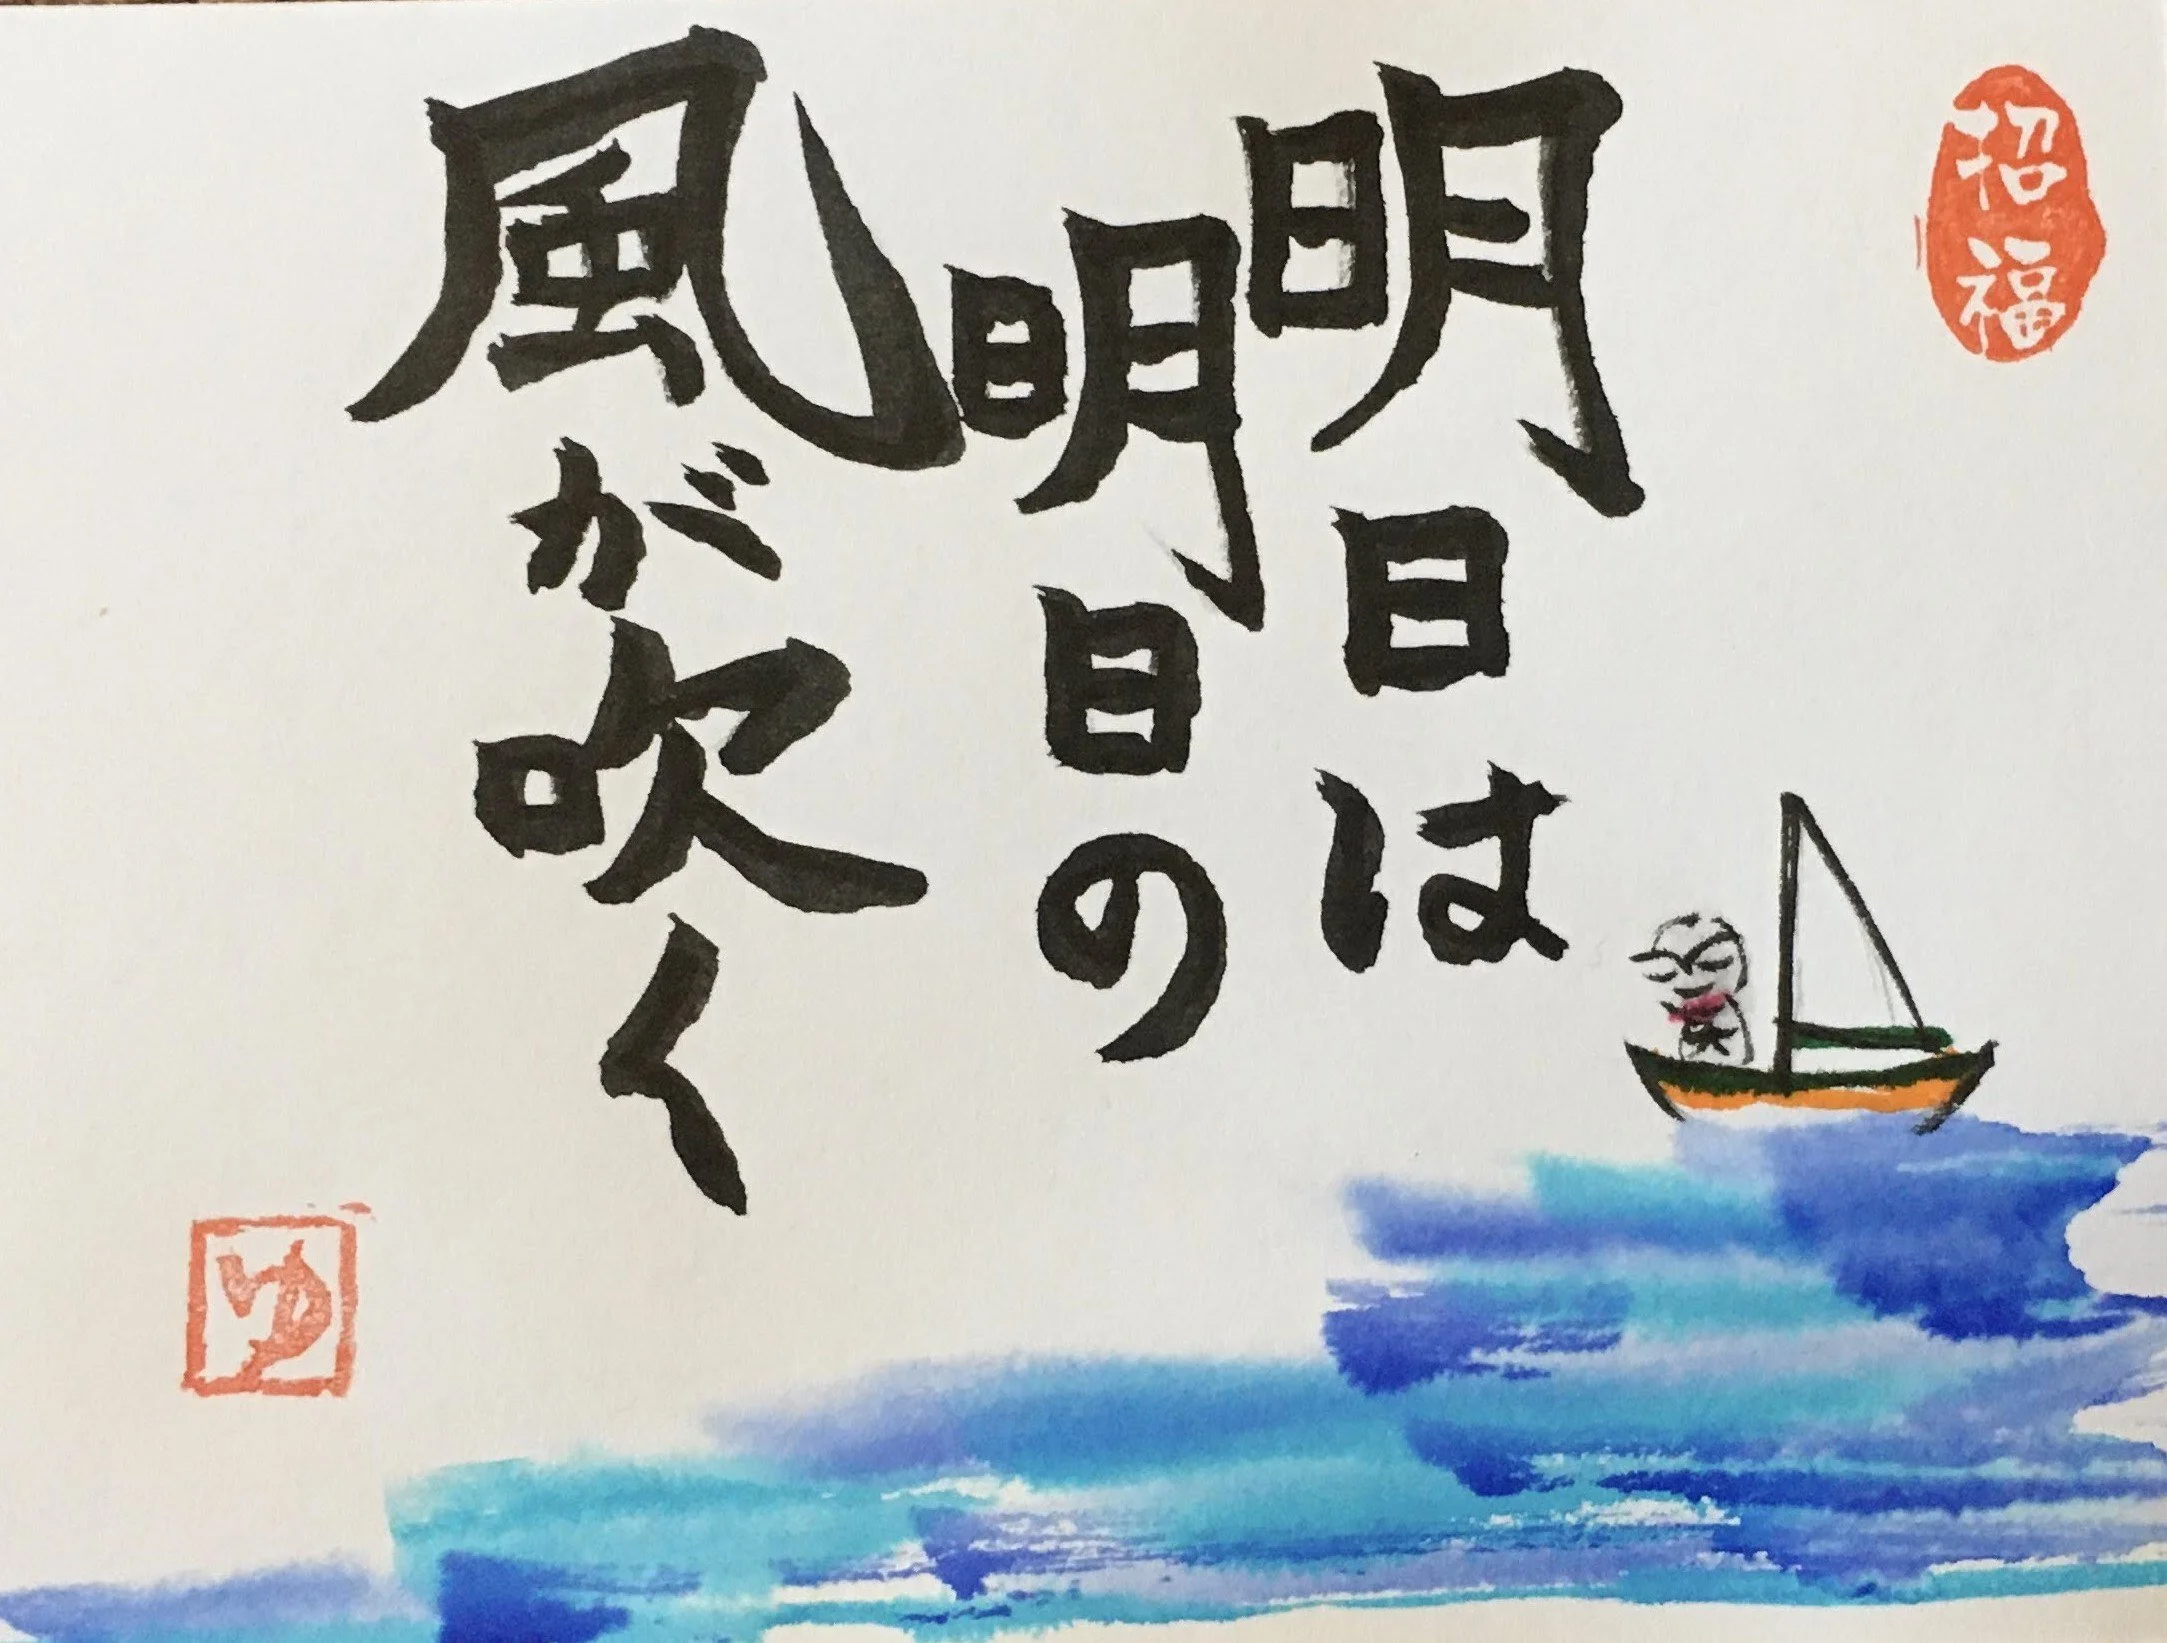 招福
明日は
明日の
風が吹く
ゆ